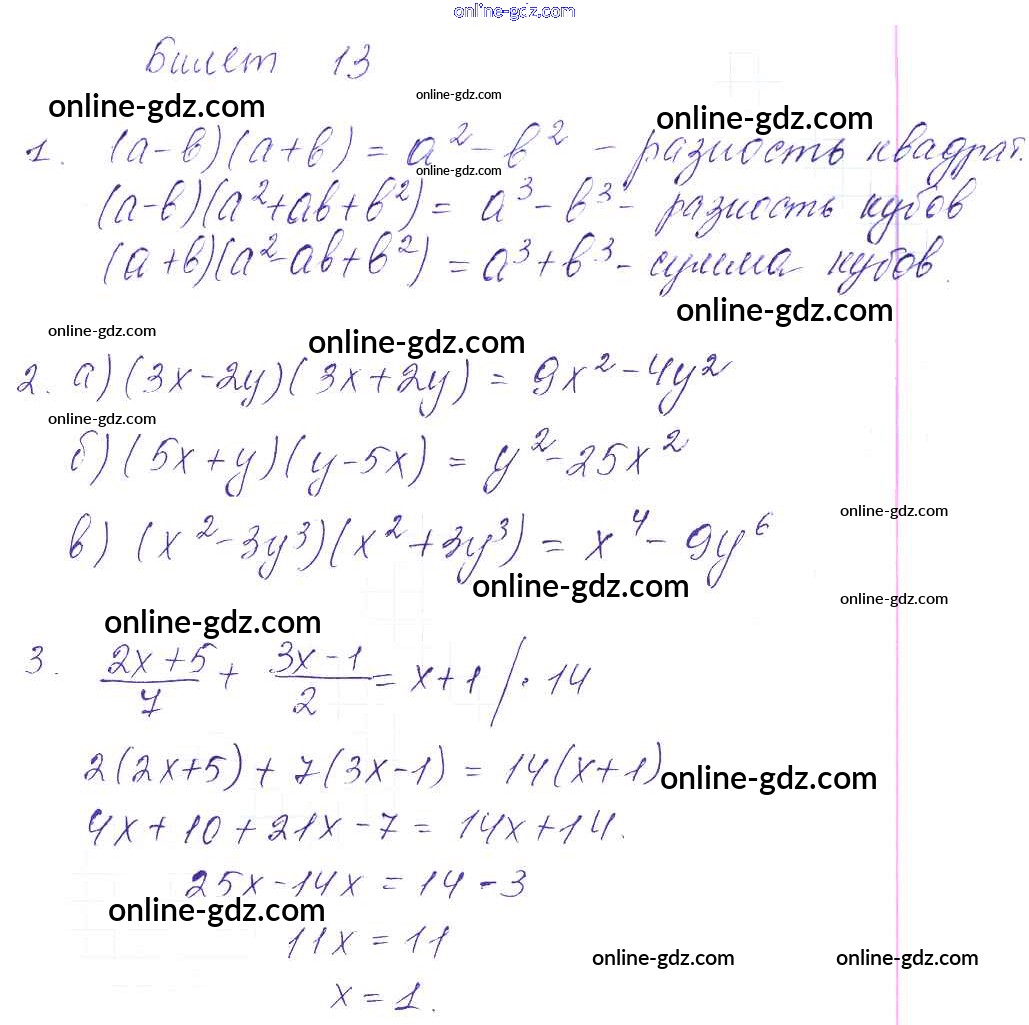 online-gdz.com
Билет 13
online-gdz.com online-gdz.com online-gdz.com
1. (a-b)(a+b) = a² - b² - разность квадрат.
online-gdz.com
(a-b)(a²+ab+b²) = a³ - b³ - разность кубов
(a+b)(a²-ab+b²) = a³ + b³ - сумма кубов.
online-gdz.com
online-gdz.com online-gdz.com
2. а) (3x-2y)(3x+2y) = 9x² - 4y²
online-gdz.com
б) (5x+y)(y-5x) = y² - 25x²
online-gdz.com
в) (x²-3y³)(x²+3y³) = x⁴ - 9y⁶
online-gdz.com online-gdz.com
online-gdz.com
3. (2x+5)/7 + (3x-1)/2 = x+1 /·14
2(2x+5) + 7(3x-1) = 14(x+1)
online-gdz.com
4x+10+21x-7 = 14x+14.
25x-14x = 14-3
online-gdz.com
11x = 11
online-gdz.com online-gdz.com
x = 1.